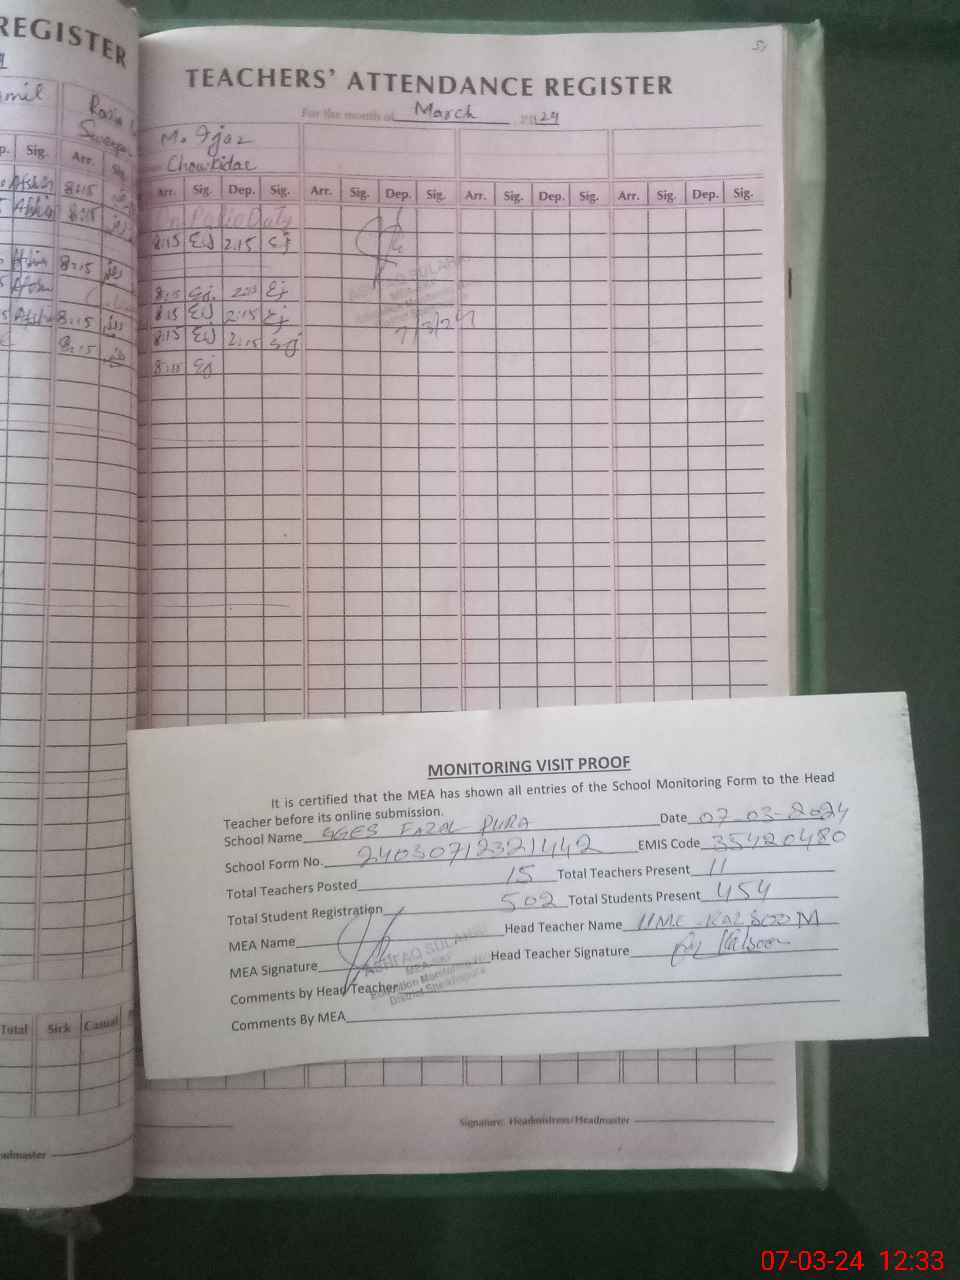 REGISTER
Sig.
Arr.
Sig.
8:15
8:15
8:15
8:15
8:15
Total Sick Casual
TEACHERS' ATTENDANCE REGISTER
For the month of March 2024
M. Ijaz
Chowkidar
Arr. Sig. Dep. Sig. Arr. Sig. Dep. Sig. Arr. Sig. Dep. Sig. Arr. Sig. Dep. Sig.
On Polio Duty
8:15 Ej 2:15 Ej
8:15 Ej Ej
8:15 Ej 2:15 Ej
8:15 Ej 2:15 Ej
8:15 Ej
7/3/24
MONITORING VISIT PROOF
It is certified that the MEA has shown all entries of the School Monitoring Form to the Head
Teacher before its online submission.
School Name GGES FAZAL PURA Date 07-03-2024
School Form No. 2403071232 1442 EMIS Code 35420480
Total Teachers Posted 15 Total Teachers Present 11
Total Student Registration 502 Total Students Present 454
MEA Name Head Teacher Name UME-KALSOOM
MEA Signature Head Teacher Signature
ASHFAQ SULAHRI
Comments by Head Teacher
Education Monitoring
District Sheikhupura
Comments By MEA
Signature: Headmistress/Headmaster
07-03-24 12:33